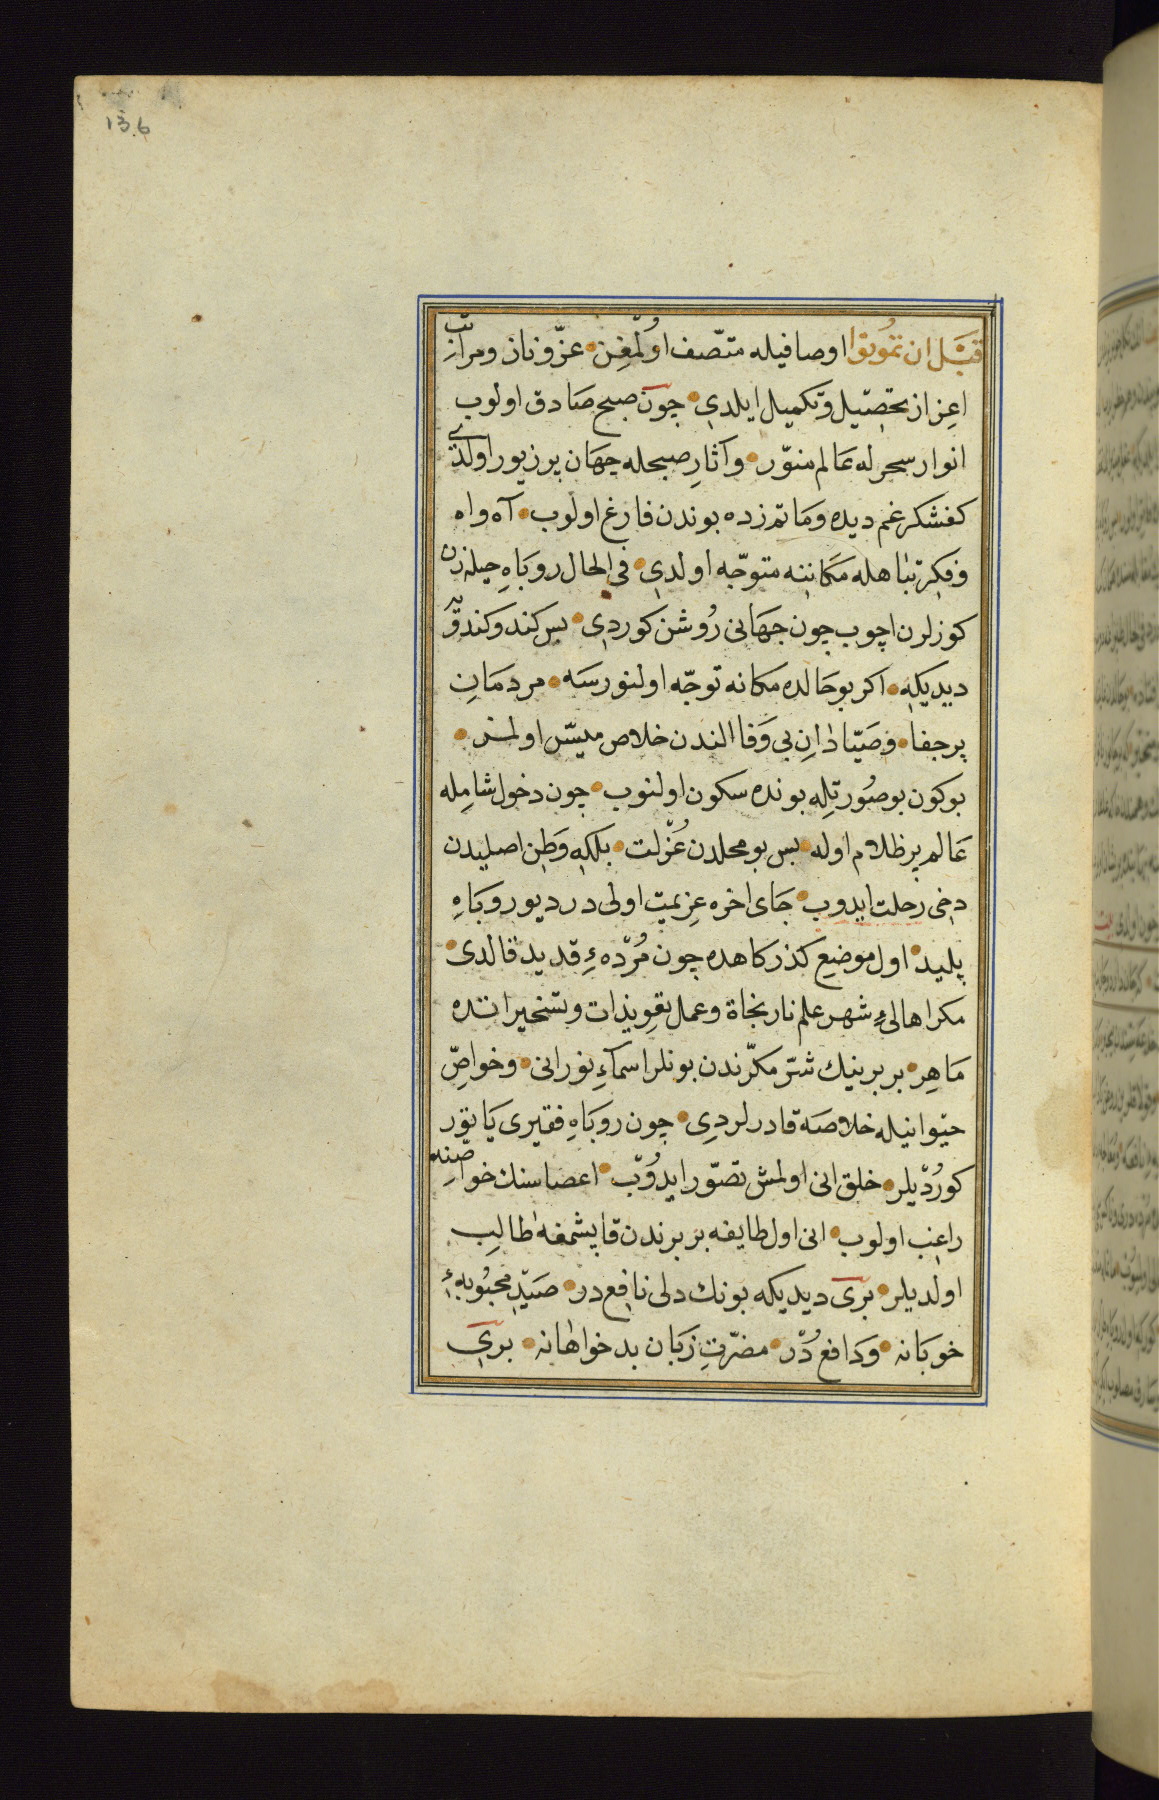 136
قَبْلَ ان تَمُوتُوا اوصافيله متّصف اولمغن عزّ و نازو مراتب
اعزازن تحصيل و تكميل ايلدى چون صبح صادق اولوب
انوار سحرله عالم منوّر و آثارِ صبحله جهان پر زيور اولدى
كفشكر غم ديده و ماتم زده بوندن فارغ اولوب آه و واه
و فكر تباهله مكاننه متوجّه اولدى فى الحال روباهِ حيله زن
كوزلرن اچوب چون جهانى روشن كوردى پس كندو كندويه
ديديكه اكر بو حالده مكانه توجّه اولنورسه مردمانِ
پر جفا و صيّادانِ بى وفا الندن خلاص ميسّر اولمز
بوكون بو صورتله بونده سكون اولنوب چون دخول شامله
عالم پر ظلام اوله پس بو محلدن عزلت بلكه وطن اصليدن
دخى رحلت ايدوب جاى اخره عزيمت اولى در ديو روباهِ
پليد اول موضع كذركاهده چون مُردهٔ قديد قالدى
مكر اهالىءِ شهر علم نارنجاة و عمل تعويذات و تسخيراتده
ماهر بر برينك شرّ مكرّندن بونلر اسماءِ نورانى و خواصّ
حيوانيله خلاصه قادرلردى چون روباهِ فقيرى ياتور
كورديلر خلق انى اولمش تصوّر ايدوب اعضاسنك خواصّنه
راغب اولوب انى اول طايفه بر برندن قاپشمغه طالب
اولديلر برى ديديكه بونك دلى نافعدر صيدِ محبوبهٔ
خوبانه و دافع در مضرّتِ زبان بدخواهانه برى